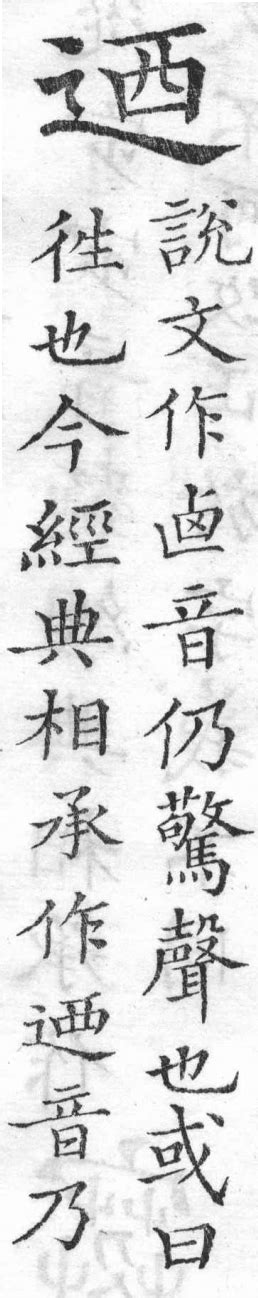 迺
說文作逌音仍驚聲也或曰
徃也今經典相承作迺音乃